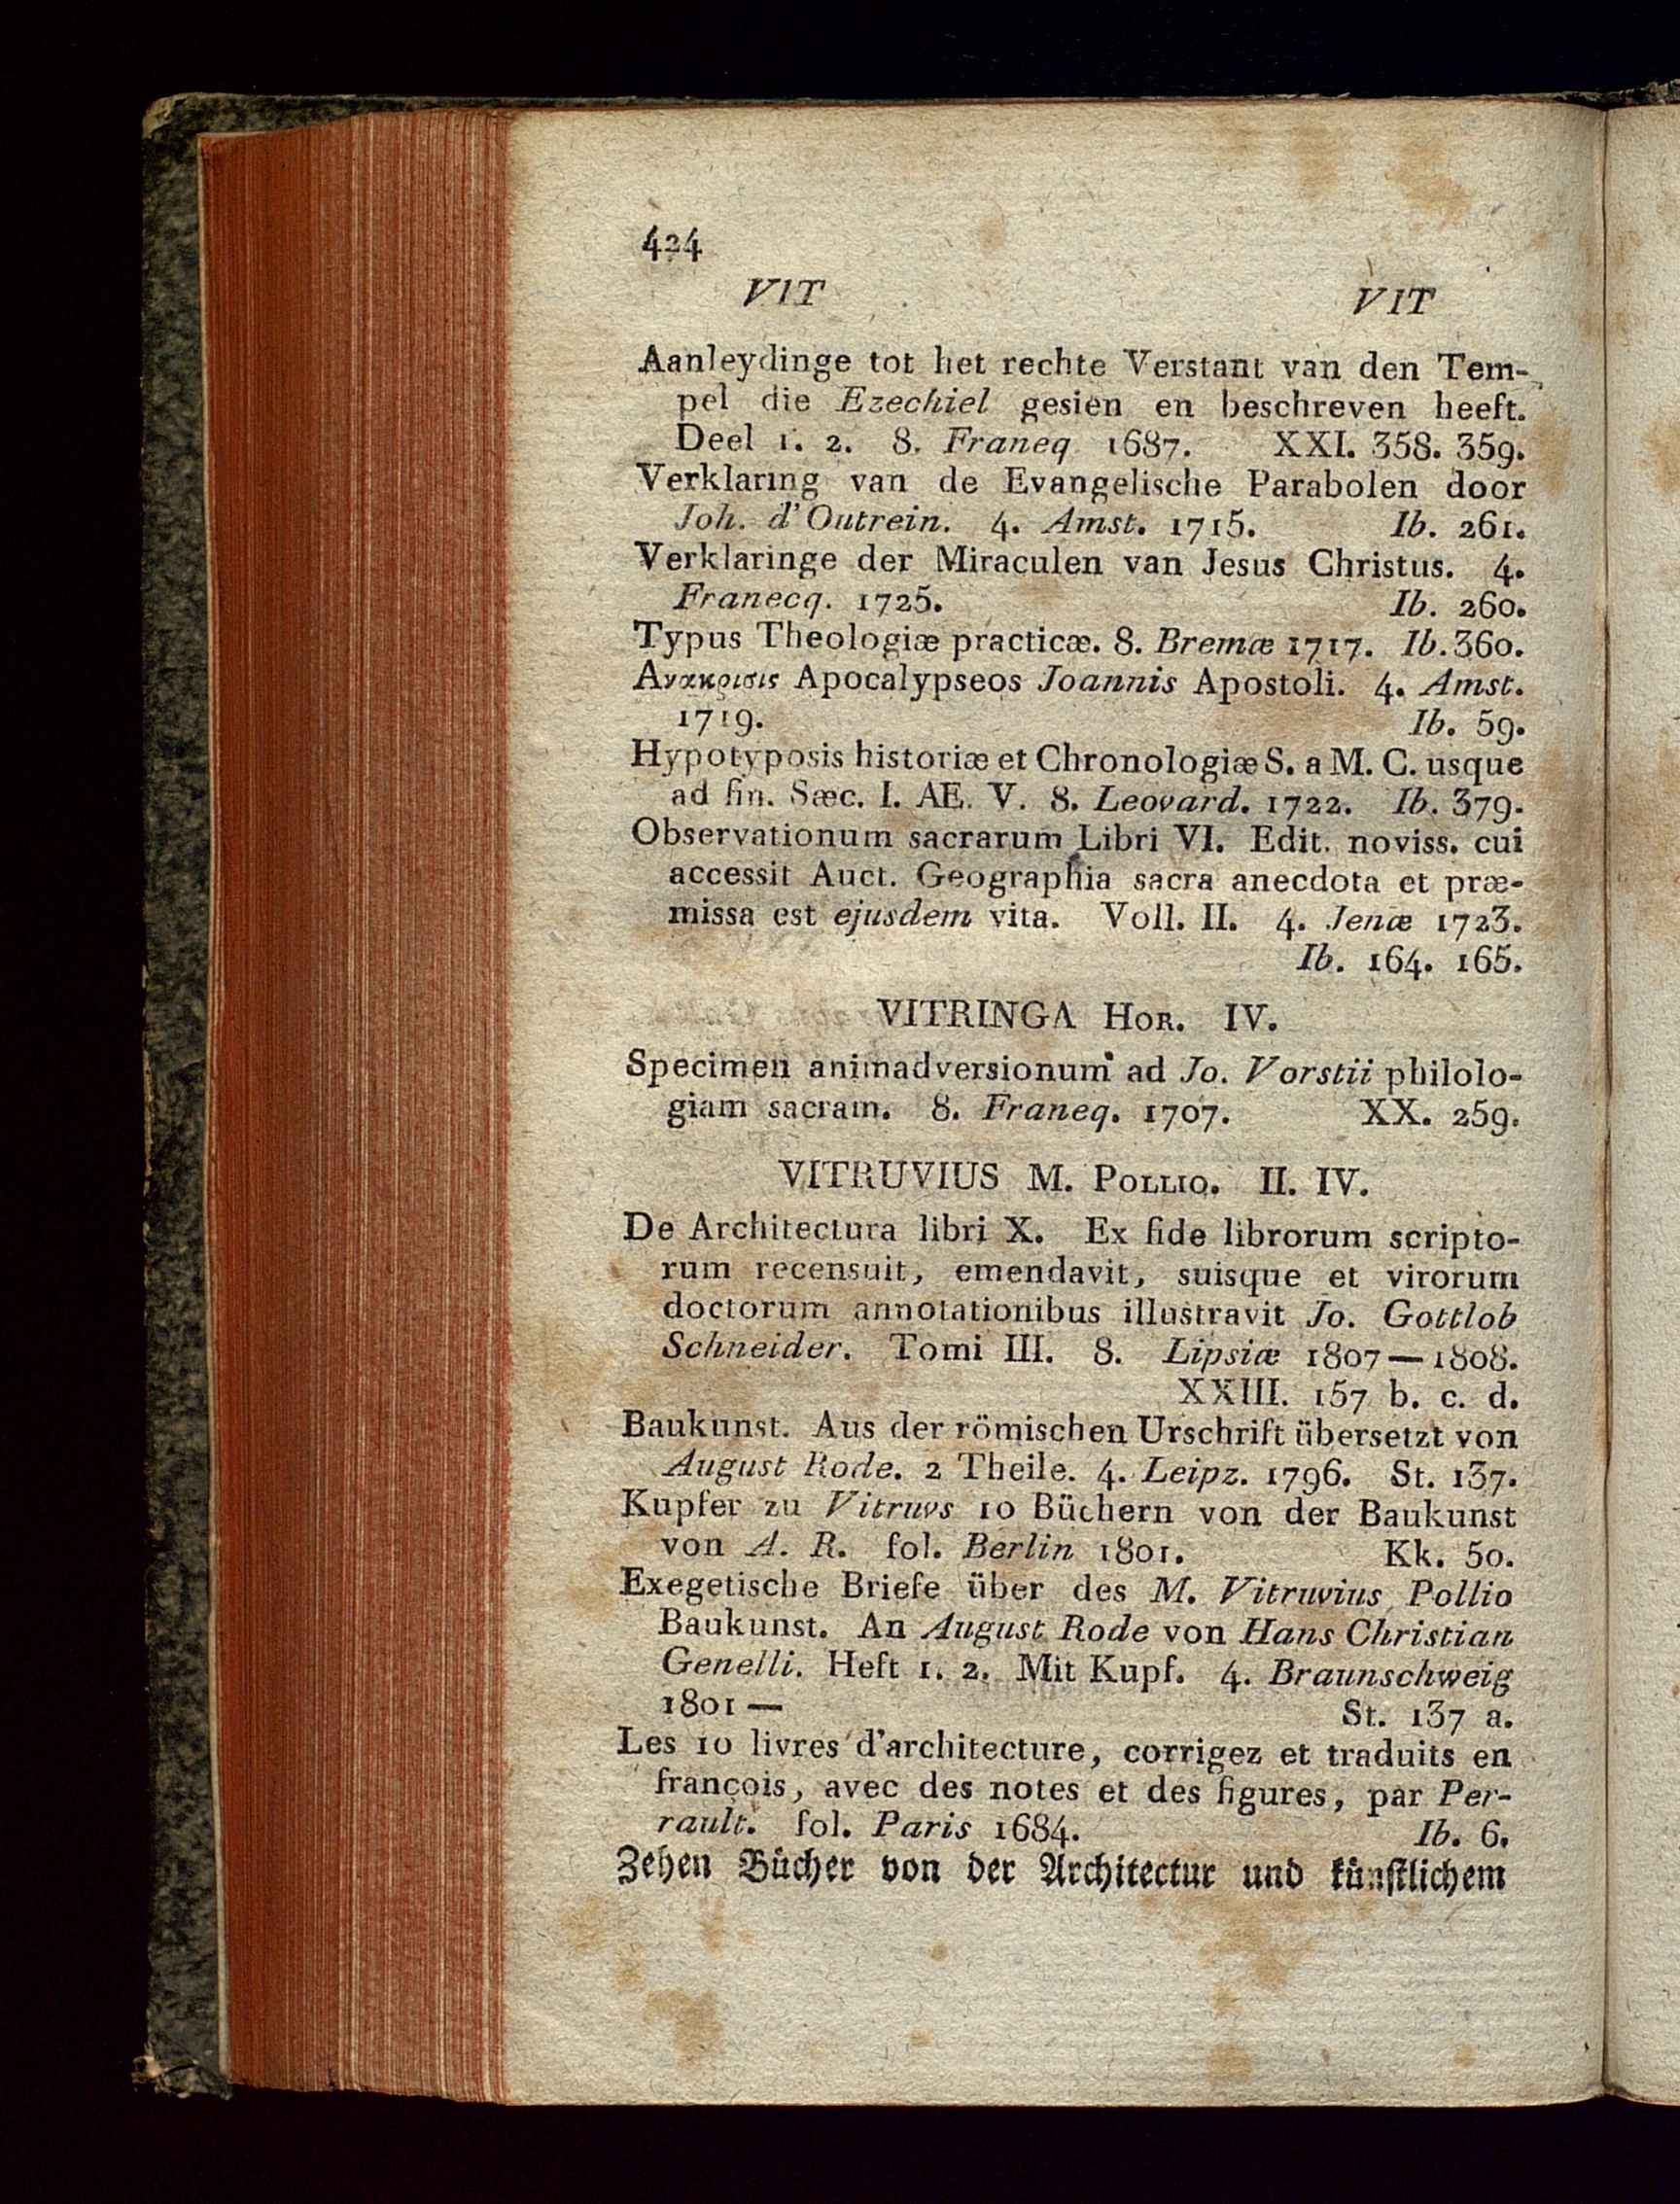 424
VIT VIT
Aanleydinge tot het rechte Verstant van den Tem-
pel die Ezechiel gesien en beschreven heeft.
Deel 1. 2. 8. Franeq 1687. XXI. 358. 359.
Verklaring van de Evangelische Parabolen door
Joh. d'Outrein. 4. Amst. 1715. Ib. 261.
Verklaringe der Miraculen van Jesus Christus. 4.
Franecq. 1725. Ib. 260.
Typus Theologiæ practicæ. 8. Bremæ 1717. Ib. 360.
Ανακρισις Apocalypseos Joannis Apostoli. 4. Amst.
1719. Ib. 59.
Hypotyposis historiæ et Chronologiæ S. a M. C. usque
ad fin. Sæc. I. AE. V. 8. Leovard. 1722. Ib. 379.
Observationum sacrarum Libri VI. Edit. noviss. cui
accessit Auct. Geographia sacra anecdota et præ-
missa est ejusdem vita. Voll. II. 4. Jenæ 1723.
Ib. 164. 165.
VITRINGA HOR. IV.
Specimen animadversionum ad Jo. Vorstii philolo-
giam sacram. 8. Franeq. 1707. XX. 259.
VITRUVIUS M. POLLIO. II. IV.
De Architectura libri X. Ex fide librorum scripto-
rum recensuit, emendavit, suisque et virorum
doctorum annotationibus illustravit Jo. Gottlob
Schneider. Tomi III. 8. Lipsiæ 1807—1808.
XXIII. 157 b. c. d.
Baukunst. Aus der römischen Urschrift übersetzt von
August Rode. 2 Theile. 4. Leipz. 1796. St. 137.
Kupfer zu Vitruvs 10 Büchern von der Baukunst
von A. R. fol. Berlin 1801. Kk. 50.
Exegetische Briefe über des M. Vitruvius Pollio
Baukunst. An August Rode von Hans Christian
Genelli. Heft 1. 2. Mit Kupf. 4. Braunschweig
1801— St. 137 a.
Les 10 livres d'architecture, corrigez et traduits en
françois, avec des notes et des figures, par Per-
rault. fol. Paris 1684. Ib. 6.
Zehen Bücher von der Architectur und künstlichem